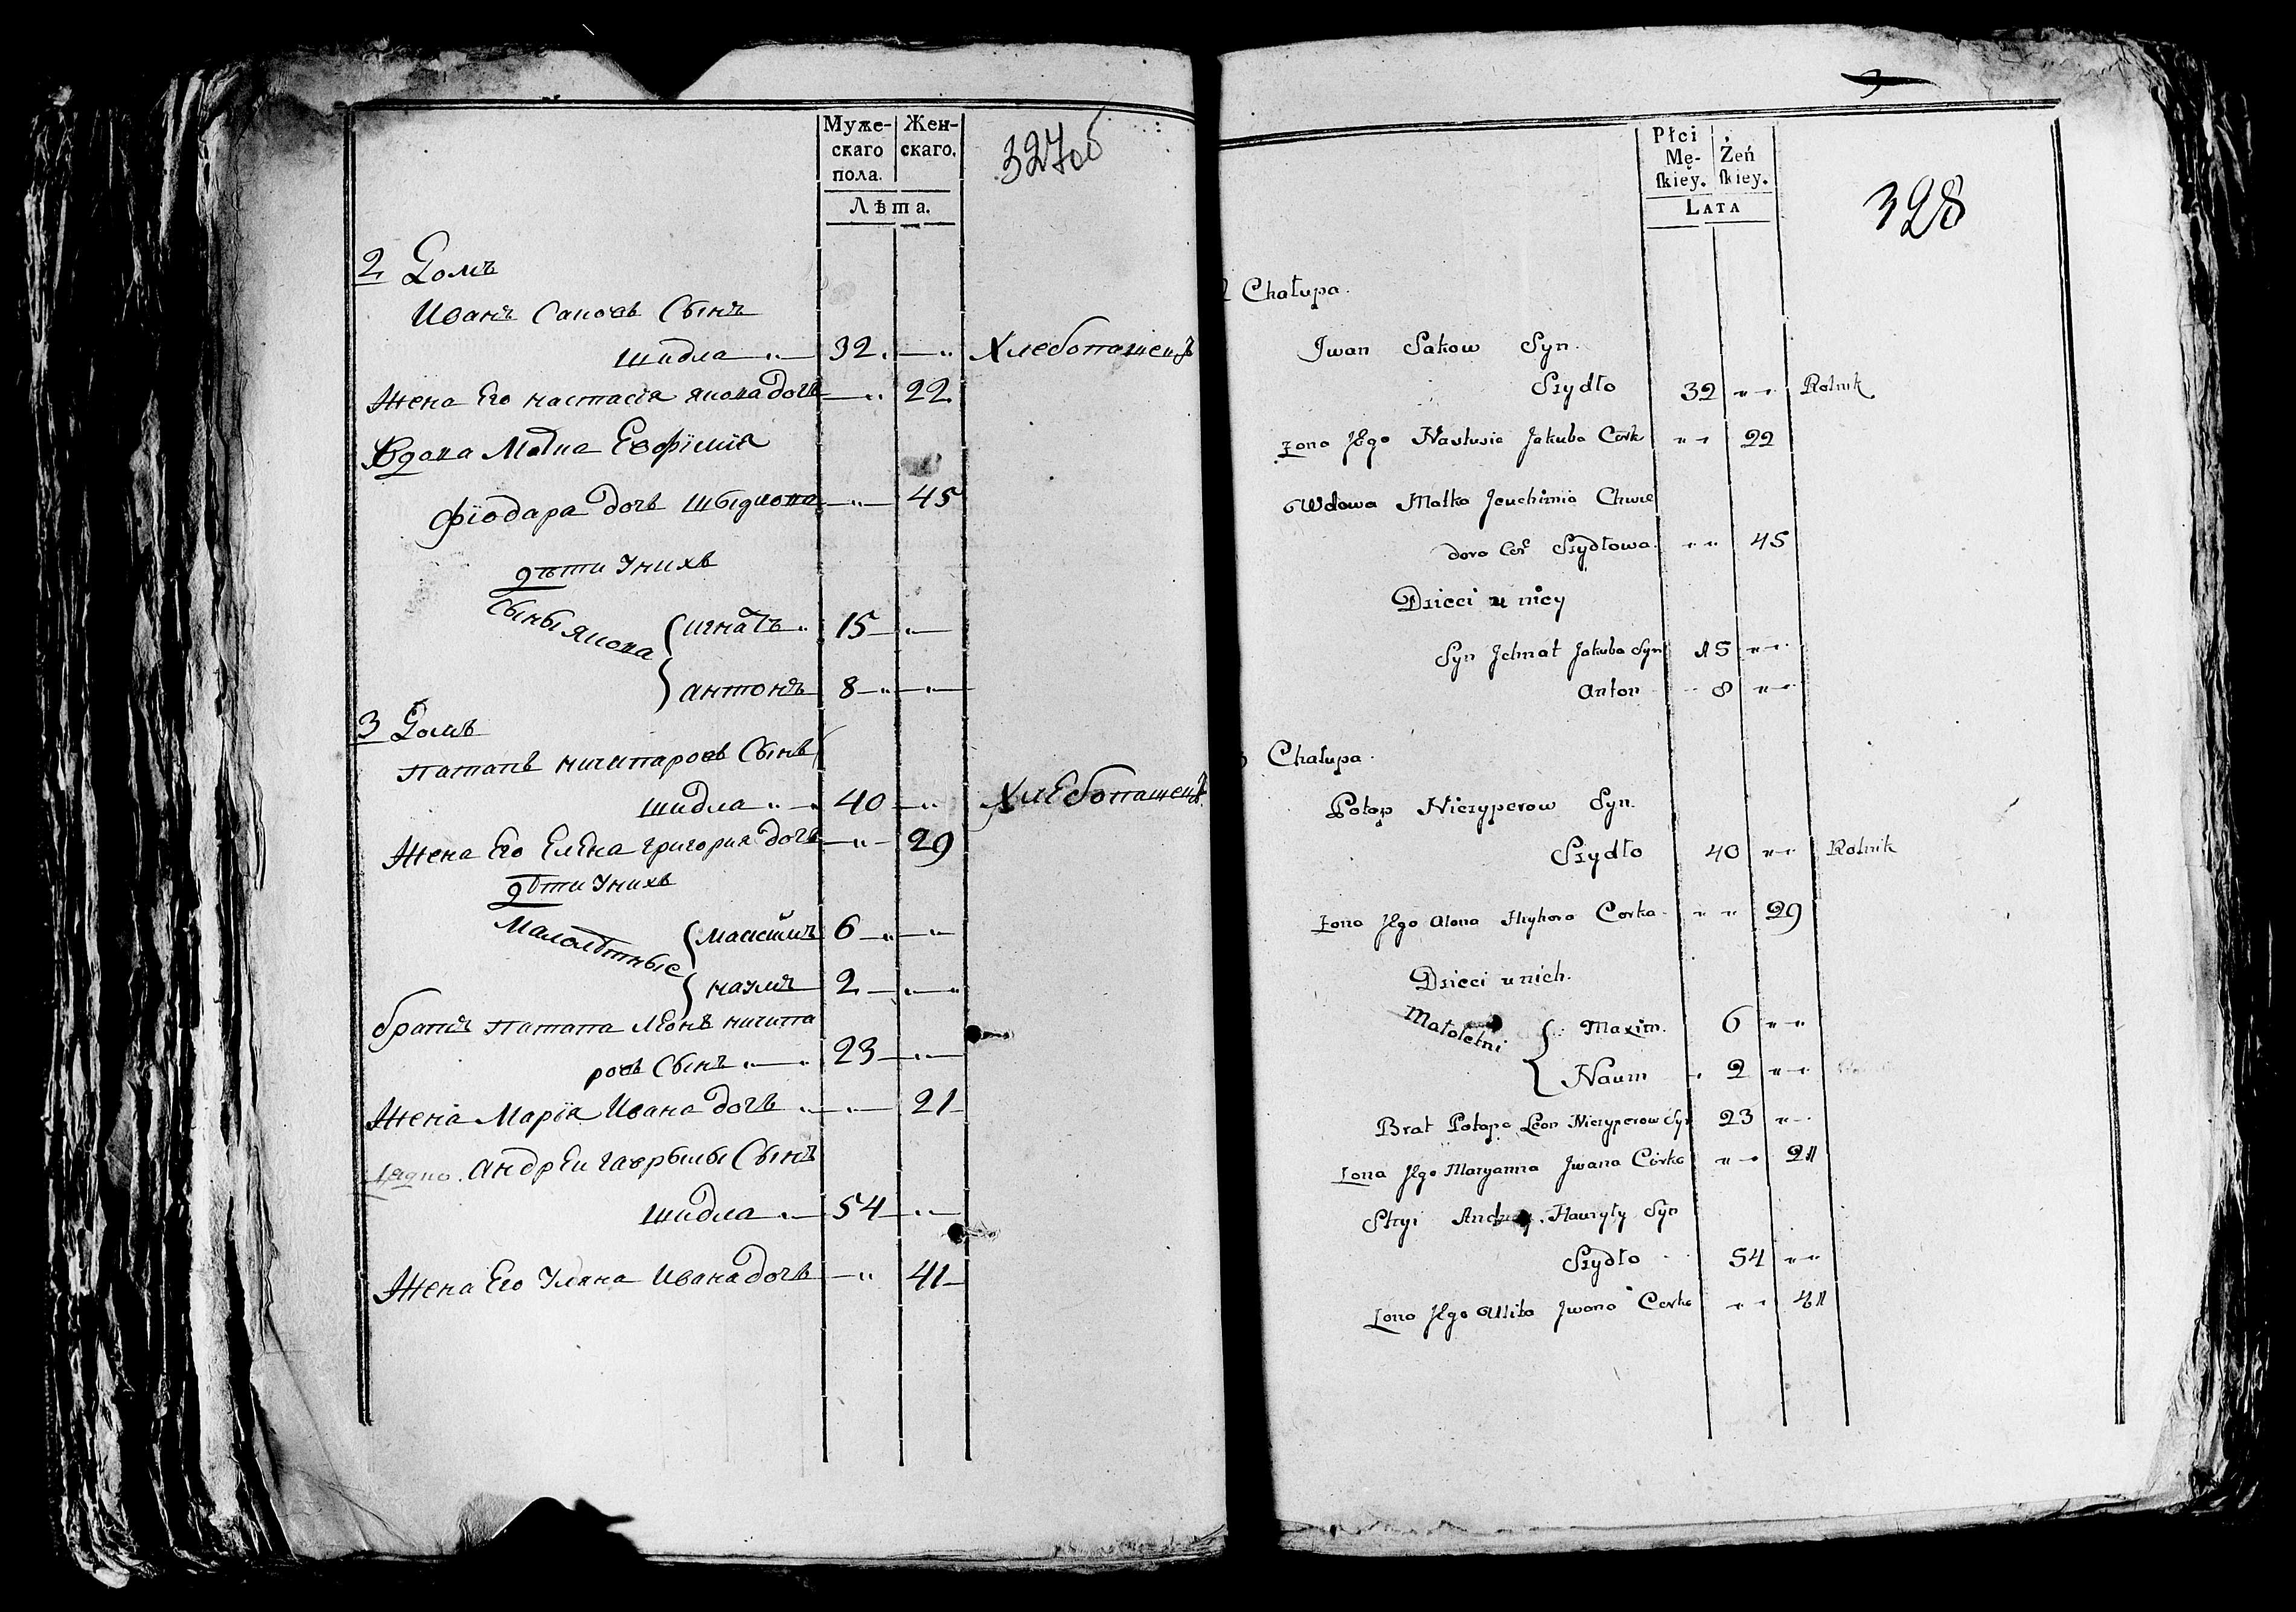 Муже-
скаго
пола.
Жен-
скаго.
Лѣта.
327об
2 Домъ
Иванъ Саковъ Сынъ
шидла 32 Хлебопашецъ
Жена Его настасія якова дочь 22
Вдова Матка Евфіміа
Фіодара дочь шыдлова 45
дѣти Унихъ
Сыны якова { игнатъ 15
антонъ 8
3 Домъ
патапъ ничипаровъ Сынъ
шидла 40 Хлебопашецъ
Жена Его Елена григория дочь 29
дѣти Унихъ
Малолѣтные { максимъ 6
наумъ 2
братъ патапа Леонъ ничипа
ровъ Сынъ 23
Жена Марія Ивана дочь 21
Андреи гаврылы Сынъ
шидла 54
Жена Его Уляна Ивана дочь 41
Płci
Mę-
ſkiey.
Żeń
ſkiey.
LATA
328
2 Chałupa.
Jwan Sakow Syn.
Szydło 32 Rolnik
Zona Jego Nastusia Jakuba Cork 22
Wdowa Matka Jeuchimia Chwe
dora Cor Szydłowa 45
Dzieci u niey
Syn Jchnat Jakuba Syn 15
Anton 8
3 Chałupa.
Potap Niczyperow Syn.
Szydło 40 Rolnik
Zona Jego Alona Hryhora Corka 29
Dzieci u nich.
Małoletni { Maxim. 6
Naum 2
Brat Potapa Leon Niczyperow Syn 23
Zona Jego Maryanna Jwana Córka 21
Stryi Andrey Hawryły Syn
Szydło 54
Zona Jego Ulita Jwana Corka 41